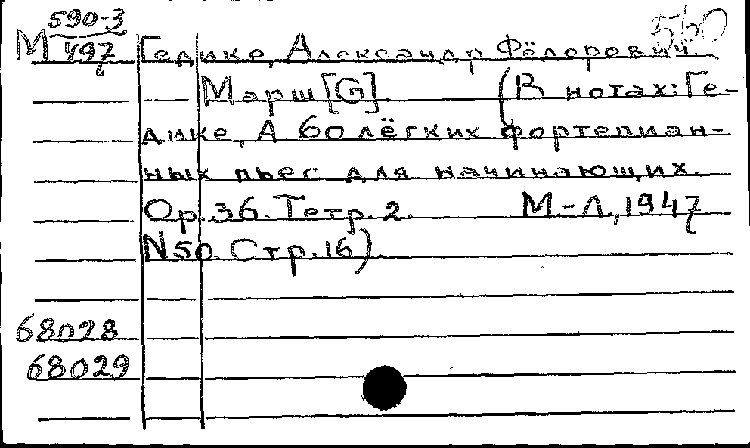 590-3 560
М 497 Гедике, Александр Фёдорович
Марш [G]. (В нотах: Ге-
дике, А 60 лёгких фортепиан-
ных пьес для начинающих.
Ор. 36. Тетр. 2. М-Л, 1947
N50. Стр. 16)
68028
68029